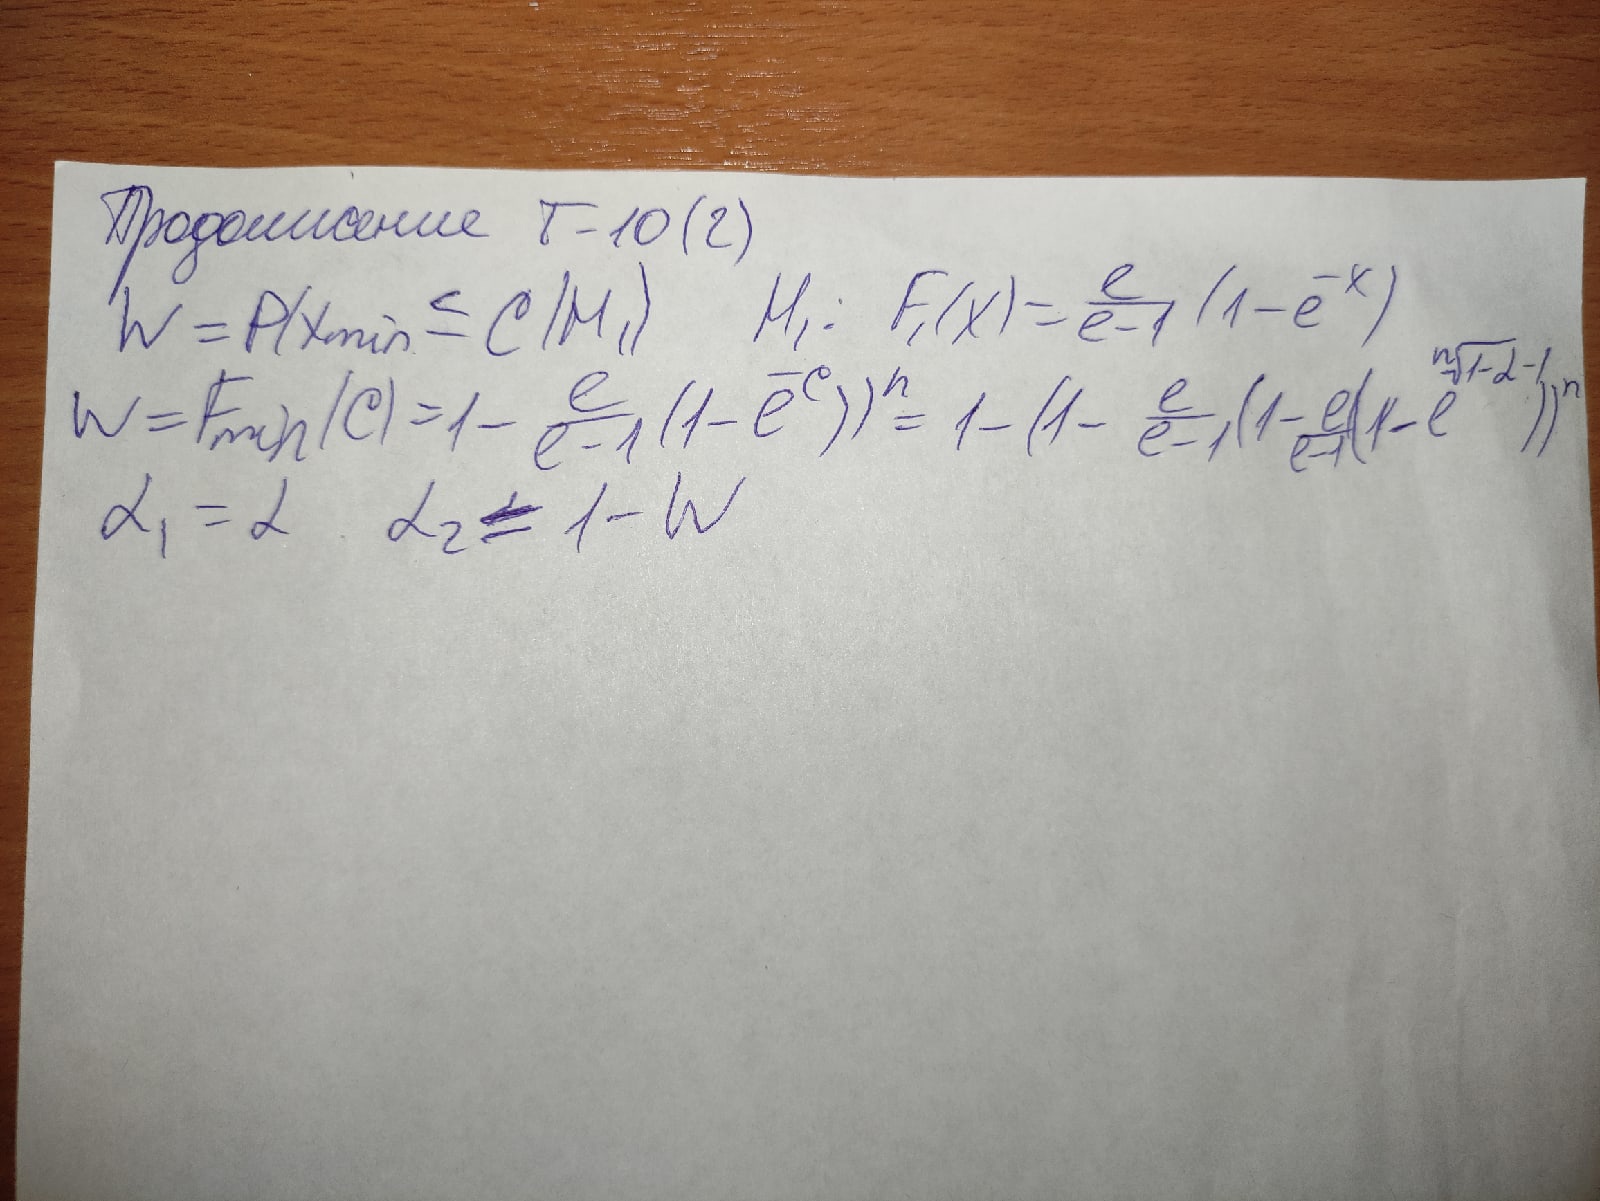 Продолжение Т-10(2)
W = P(x_min ≤ C/H₁) H₁: F₁(x) = e/(e-1) (1-e^-x)
W = F_min(C) = 1 - e/(e-1) (1-e^-C))^n = 1-(1- e/(e-1) (1- e/(e-1) (1-e^(ⁿ√(1-α)-1)))^n
α₁ = α α₂ = 1-W